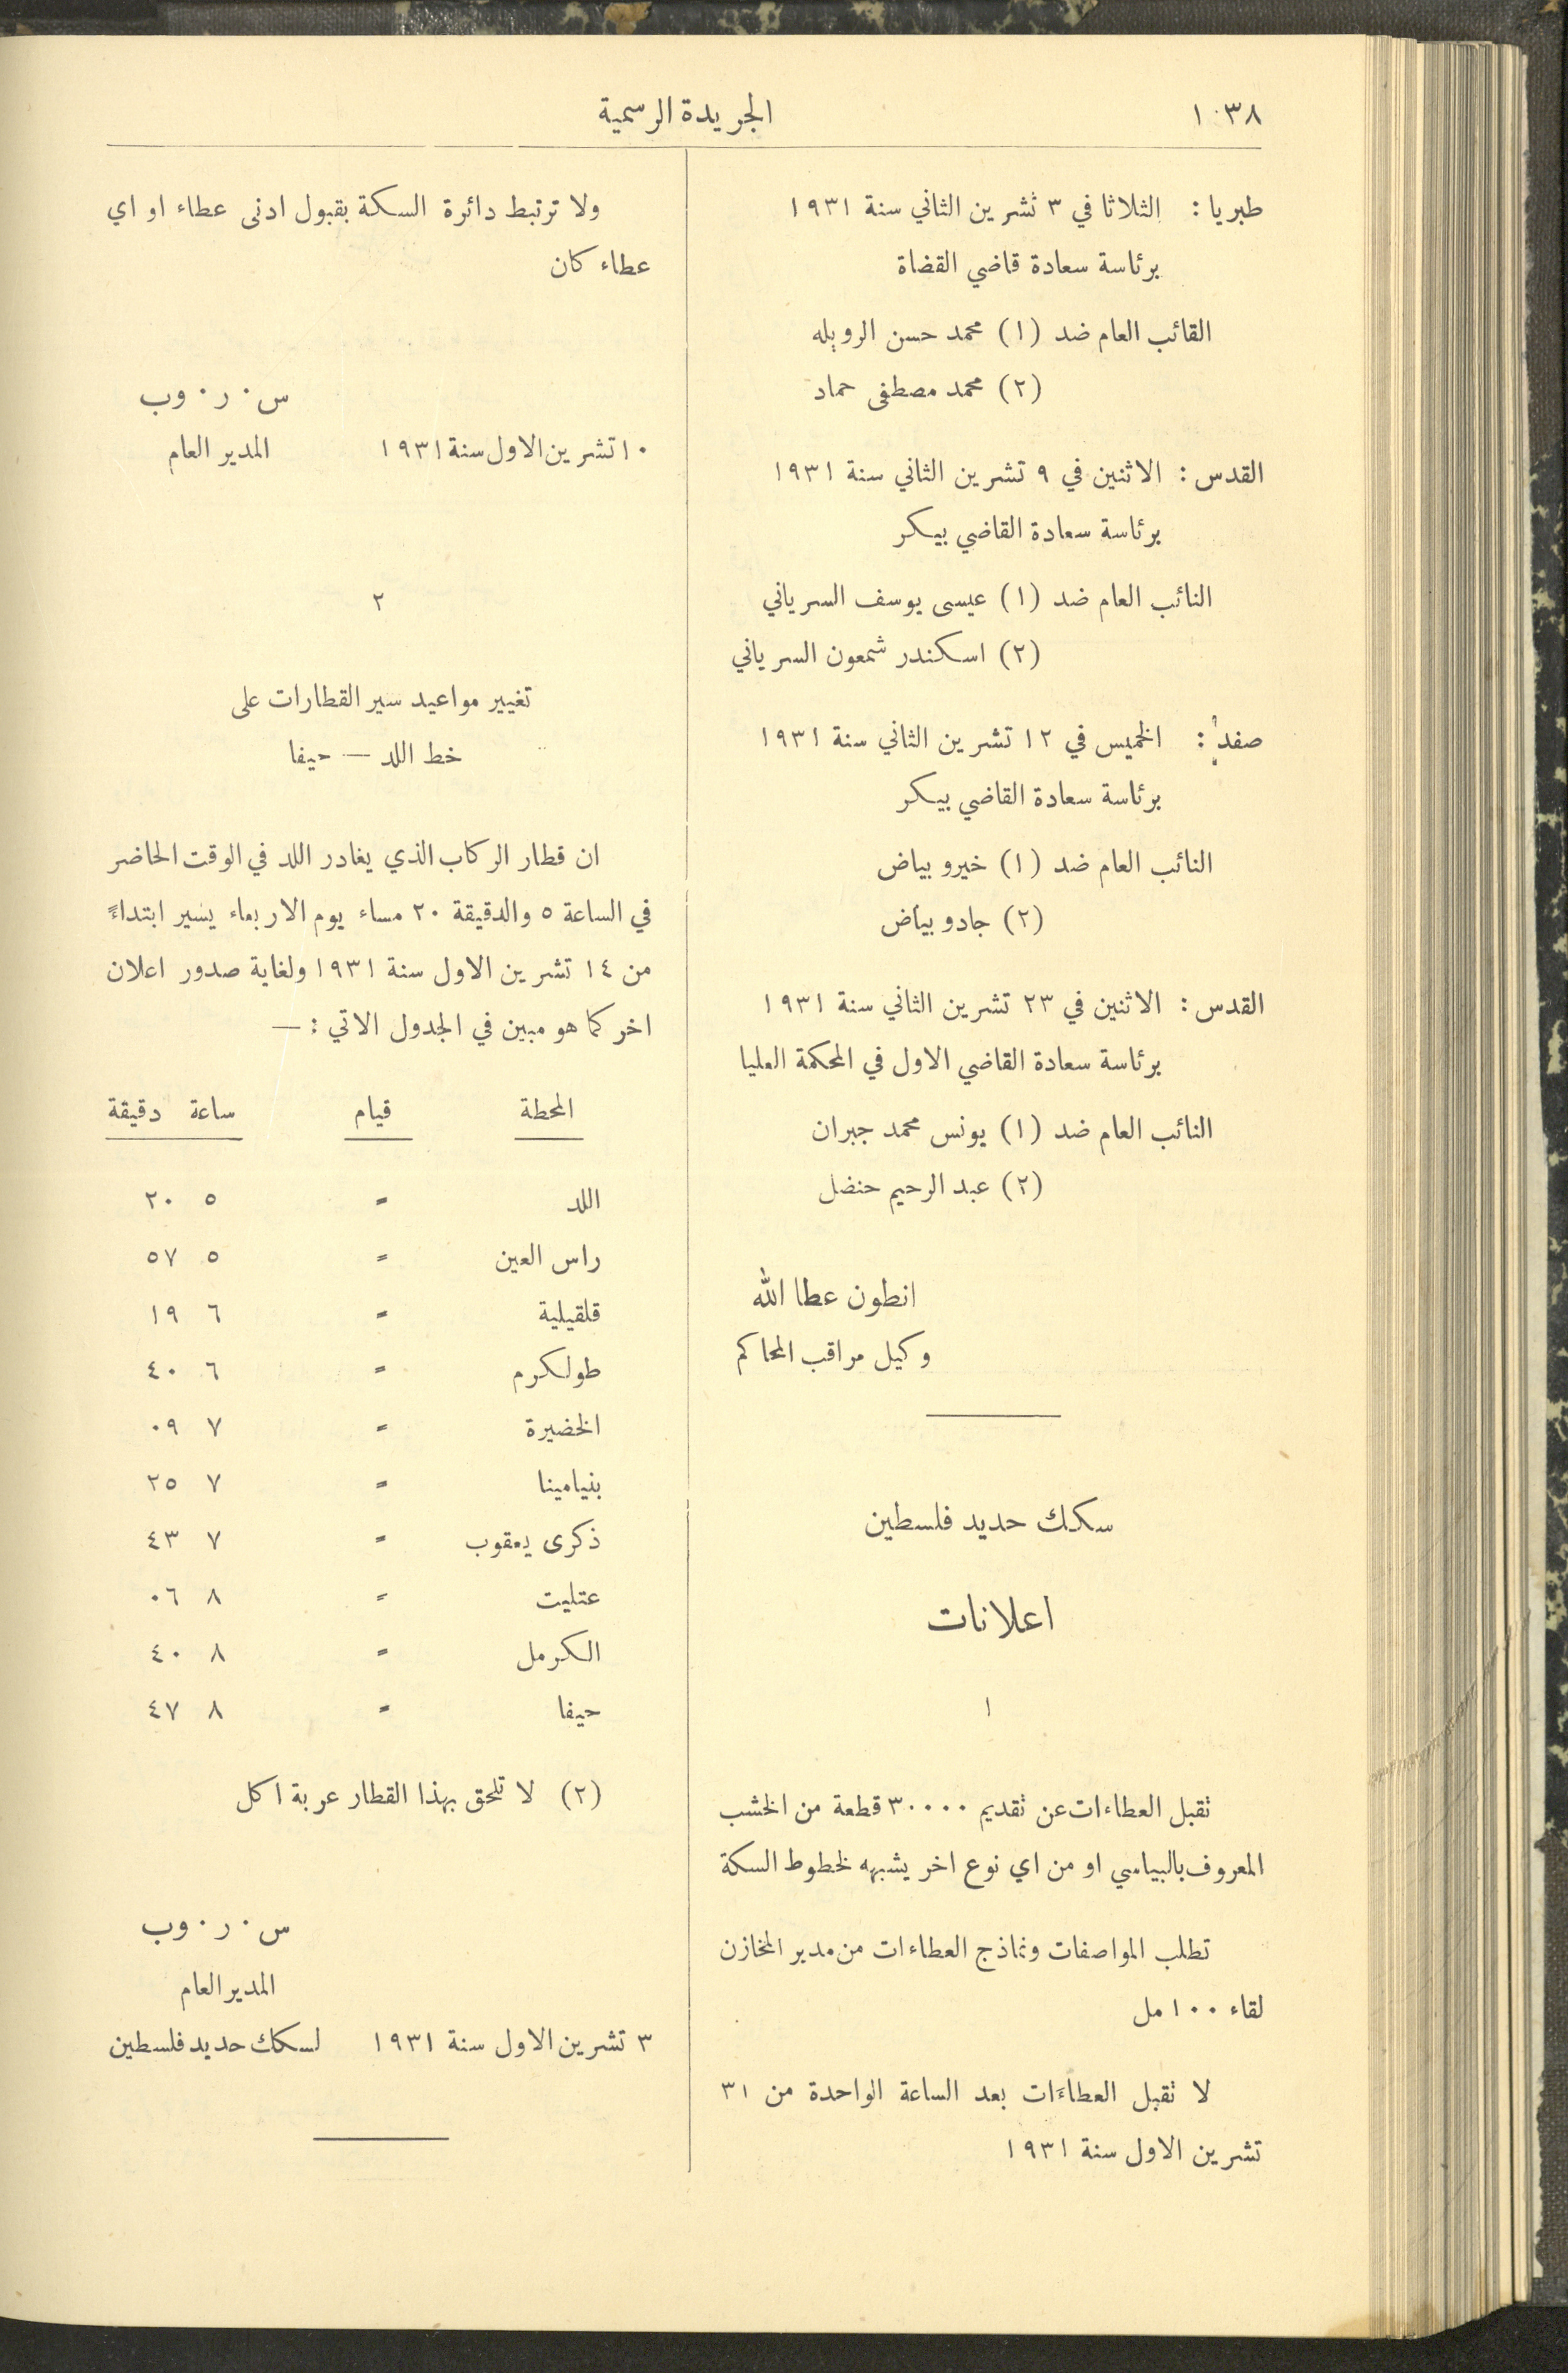 ١٠٣٨
الجريدة الرسمية
طبريا : الثلاثا في ٣ تشرين الثاني سنة ١٩٣١
برئاسة سعادة قاضي القضاة
القائب العام ضد (١) محمد حسن الروبله
(٢) محمد مصطفى حماد
القدس : الاثنين في ٩ تشرين الثاني سنة ١٩٣١
برئاسة سعادة القاضي بيكر
النائب العام ضد (١) عيسى يوسف السرياني
(٢) اسكندر شمعون السرياني
صفد : الخميس في ١٢ تشرين الثاني سنة ١٩٣١
برئاسة سعادة القاضي بيكر
النائب العام ضد (١) خيرو بياض
(٢) جادو بياض
القدس : الاثنين في ٢٣ تشرين الثاني سنة ١٩٣١
برئاسة سعادة القاضي الاول في المحكمة العليا
النائب العام ضد (١) يونس محمد جبران
(٢) عبد الرحيم حنضل
انطون عطا الله
وكيل مراقب المحاكم
سكك حديد فلسطين
اعلانات
١
تقبل العطاءات عن تقديم ٣٠٠٠٠ قطعة من الخشب
المعروف بالبياصي او من اي نوع اخر يشبهه لخطوط السكة
تطلب المواصفات ونماذج العطاءات من مدير المخازن
لقاء ١٠٠ مل
لا تقبل العطاءَات بعد الساعة الواحدة من ٣١
تشرين الاول سنة ١٩٣١
ولا ترتبط دائرة السكة بقبول ادنى عطاء او اي
عطاء كان
س ٠ ر ٠ وب
١٠ تشرين الاول سنة ١٩٣١ المدير العام
٢
تغيير مواعيد سير القطارات على
خط اللد — حيفا
ان قطار الركاب الذي يغادر اللد في الوقت الحاضر
في الساعة ٥ والدقيقة ٢٠ مساء يوم الاربعاء يسير ابتداءً
من ١٤ تشرين الاول سنة ١٩٣١ ولغاية صدور اعلان
اخر كما هو مبين في الجدول الاتي : —
المحطة قيام ساعة دقيقة
اللد = ٥ ٢٠
راس العين = ٥ ٥٧
قلقيلية = ٦ ١٩
طولكرم = ٦ ٤٠
الخضيرة = ٧ ٠٩
بنيامينا = ٧ ٢٥
ذكرى يعقوب = ٧ ٤٣
عتليت = ٨ ٠٦
الكرمل = ٨ ٤٠
حيفا = ٨ ٤٧
(٢) لا تلحق بهذا القطار عربة اكل
س ٠ ر ٠ وب
المدير العام
٣ تشرين الاول سنة ١٩٣١ لسكك حديد فلسطين